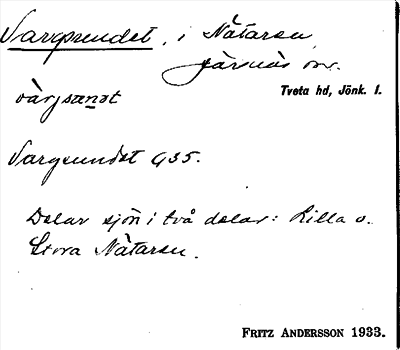 Vargsundet, i Nätaren,
Järsnäs sn.
Tveta hd, Jönk. l.
Vargsundet G35.
Delar sjön i två delar: Lilla o.
Stora Nätaren.
FRITZ ANDERSSON 1933.